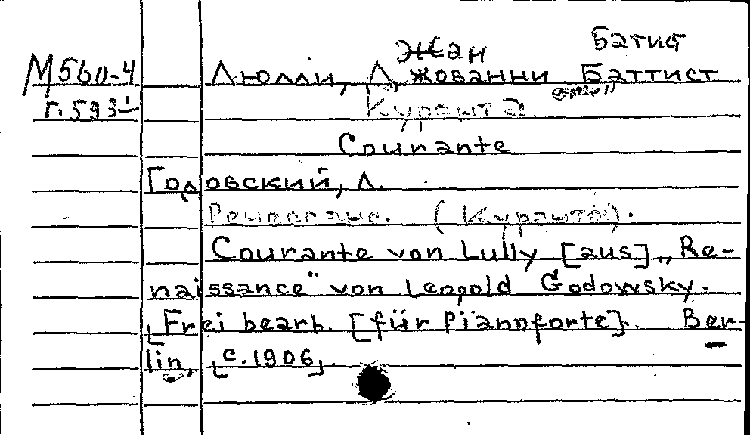 Жан Батист
М560-4 Люлли, Д, жованни Баттист
г.593
Куранта
Courante
Годовский, Л.
Ренессанс. (Куранта).
Courante von Lully [aus] „Re-
naissance" von Leopold Godowsky.
Frei bearb. [für Pianoforte]. Ber-
lin, [c.1906].